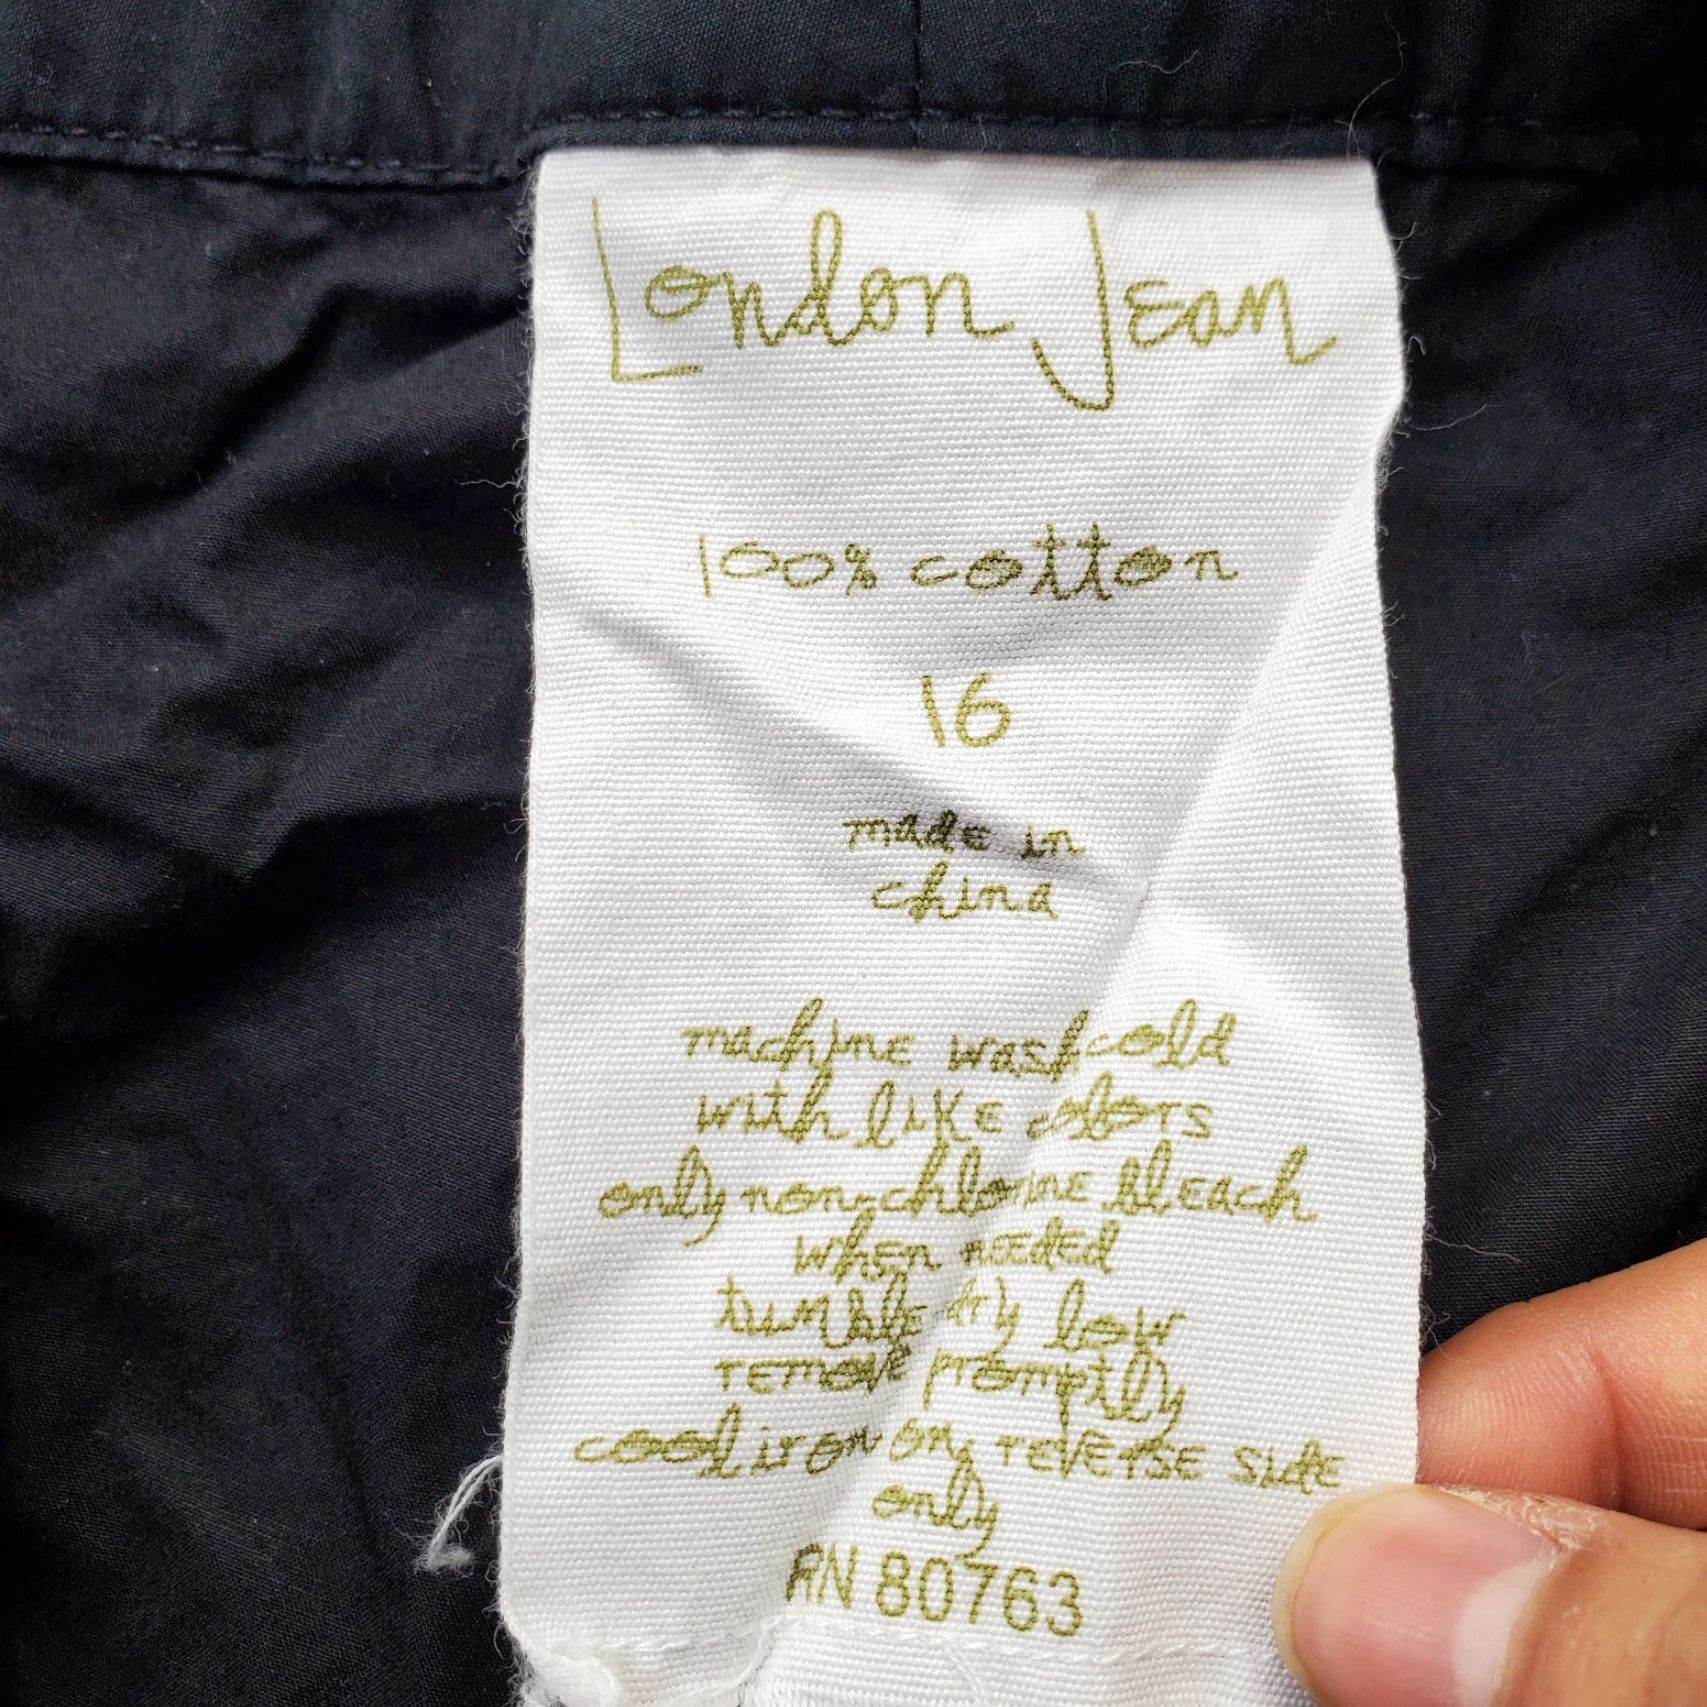 London Jean
100% cotton
16
made in
china
machine wash cold
with like colors
only non-chlorine bleach
when needed
tumble dry low
remove promptly
cool iron on reverse side
only
RN 80763